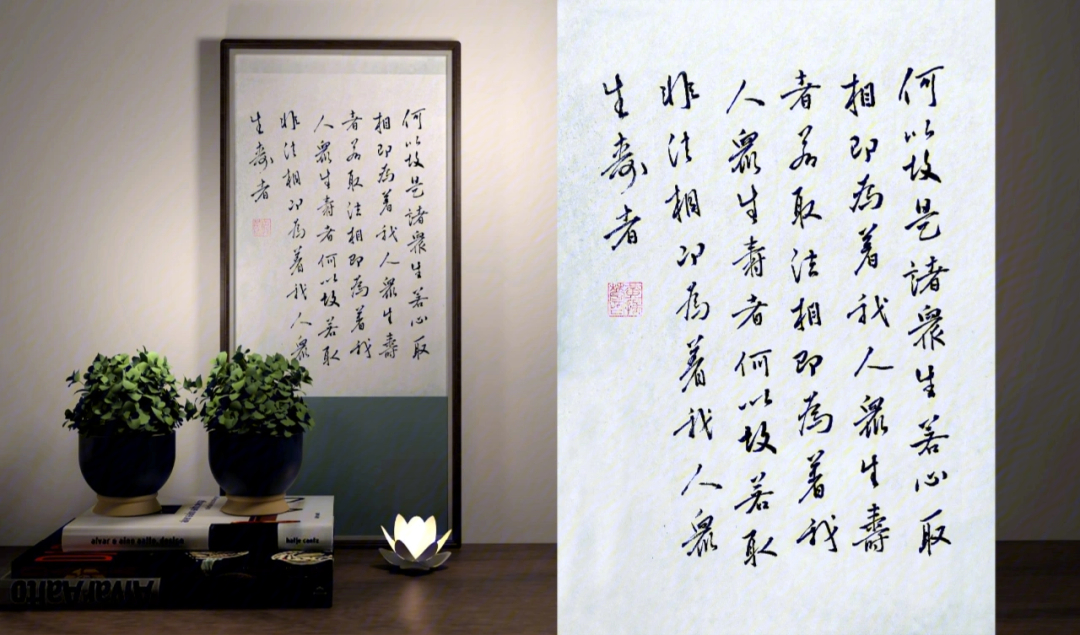 何以故是諸衆生若心取
相即為着我人眾生壽
者若取法相即為着我
人眾生壽者何以故若取
非法相即為着我人眾
生壽者
alvar o aino aalto. design
hatje cantz
Alvar Aalto
何以故是諸衆生若心取
相即為着我人眾生壽
者若取法相即為着我
人眾生壽者何以故若取
非法相即為着我人眾
生壽者